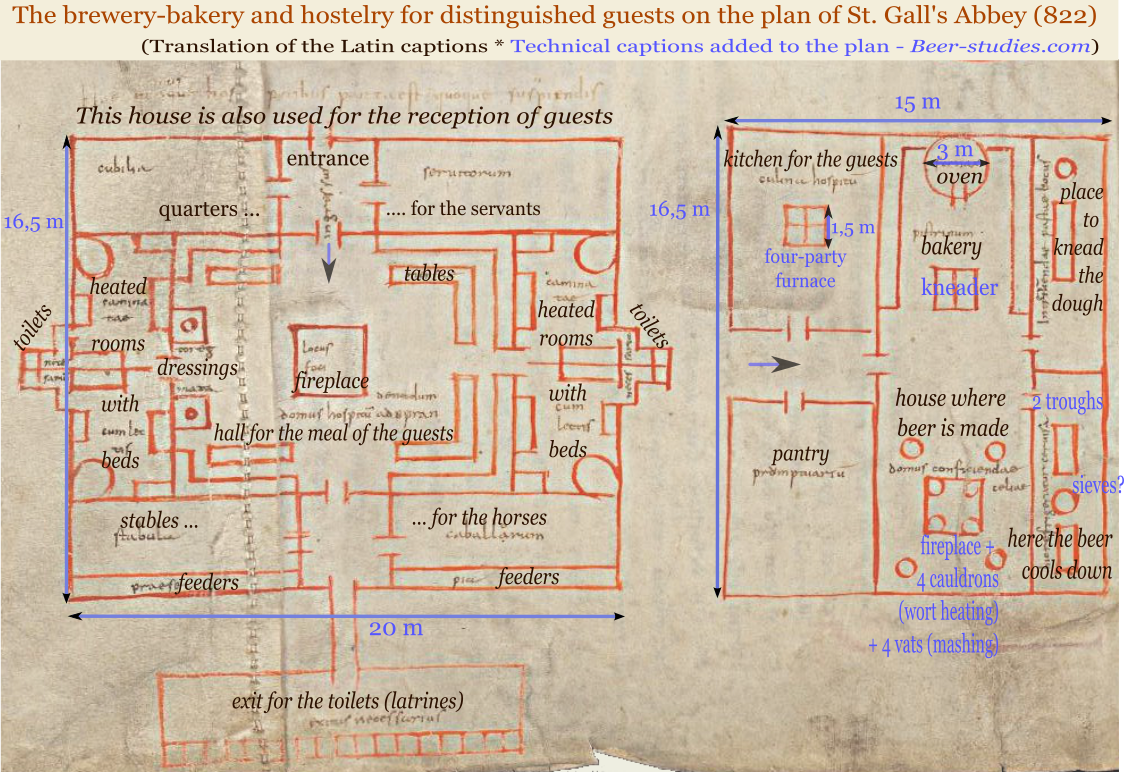 The brewery-bakery and hostelry for distinguished guests on the plan of St. Gall's Abbey (822)
(Translation of the Latin captions * Technical captions added to the plan - Beer-studies.com)
This house is also used for the reception of guests
cubilia
entrance
ingressus
seruitorum
quarters ...
.... for the servants
16,5 m
heated
rooms
with
beds
toilets
dressings
tables
locus
foci
fireplace
domus hospitu
hall for the meal of the guests
heated
rooms
with
cum
lectis
beds
toilets
stables ...
stabula
... for the horses
caballarum
feeders
feeders
20 m
exit for the toilets (latrines)
exitus necessarius
15 m
16,5 m
kitchen for the guests
culina hospitu
1,5 m
four-party
furnace
3 m
oven
pistrinum
bakery
kneader
place
to
knead
the
dough
pantry
promptuariu
house where
beer is made
domus conficiendae
celiae
fireplace +
4 cauldrons
(wort heating)
+ 4 vats (mashing)
2 troughs
sieves?
here the beer
cools down